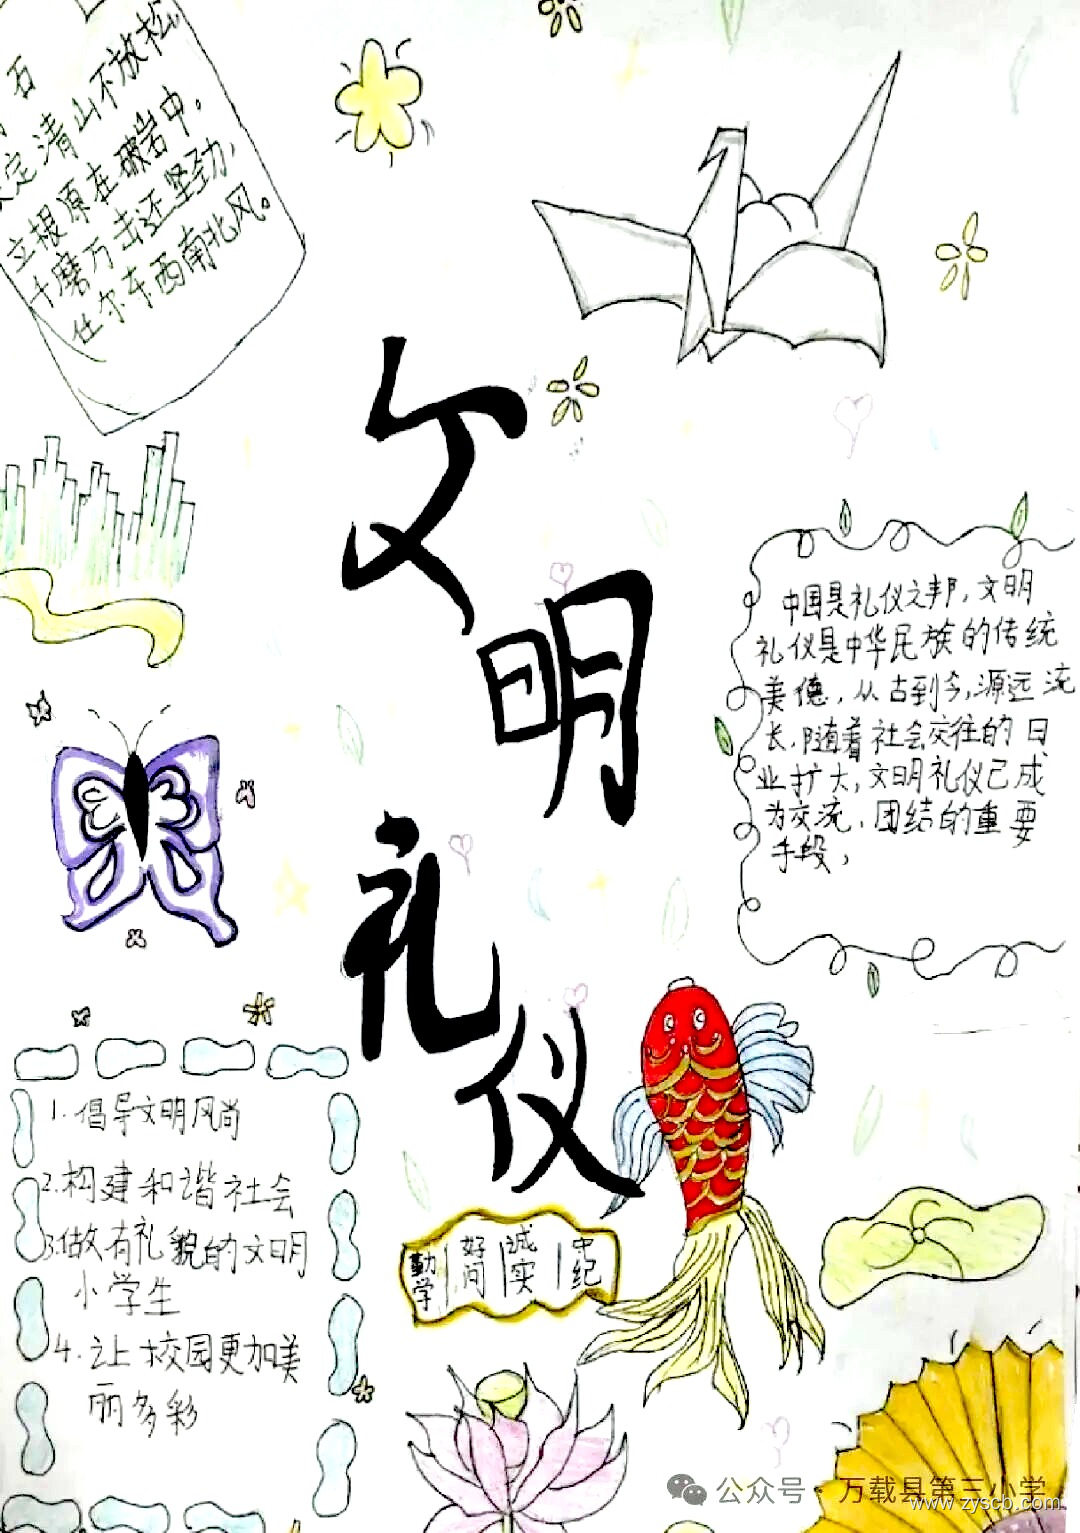 石
定清山不放松
立根原在破岩中。
千磨万击还坚劲,
任尔东西南北风。
文明
礼仪
中国是礼仪之邦,文明
礼仪是中华民族的传统
美德,从古到今,源远流
长,随着社会交往的日
业扩大,文明礼仪已成
为交流、团结的重要
手段,
1.倡导文明风尚
2.构建和谐社会
3.做有礼貌的文明
小学生
4.让校园更加美
丽多彩
勤学 好问 诚实 中纪
公众号·万载县第三小学
www.zyscb.com